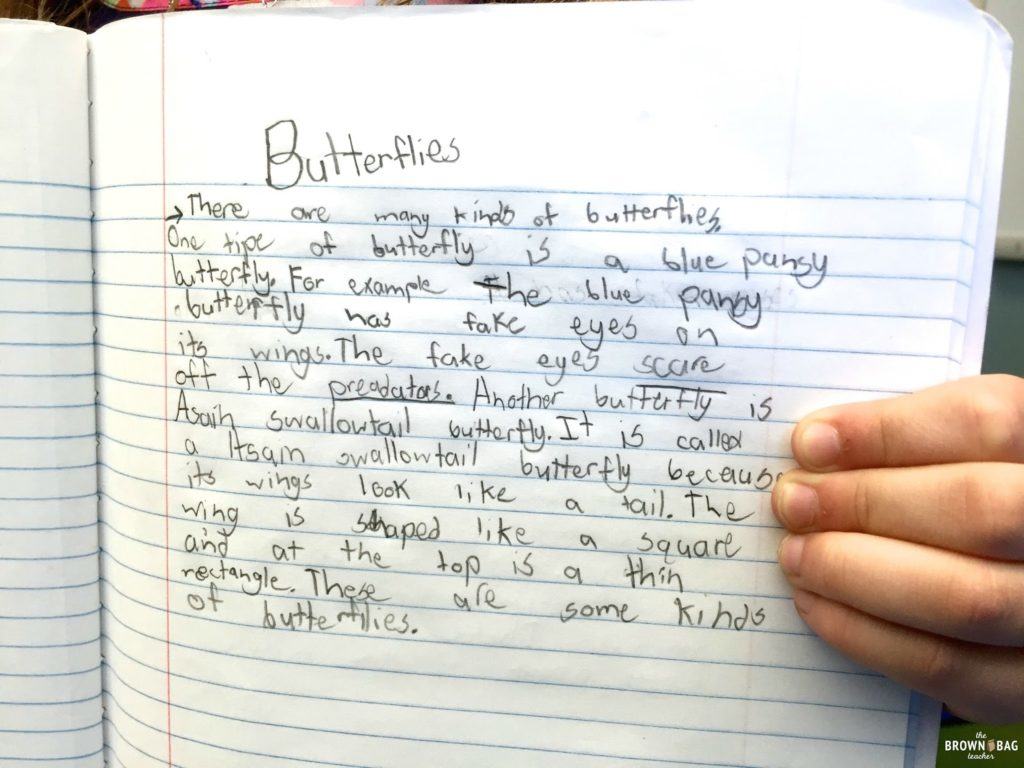 Butterflies
→There are many kinds of butterflies.
One tipe of butterfly is a blue pansy
butterfly. For example The blue pansy
butterfly has fake eyes on
its wings. The fake eyes scare
off the preadators. Another butterfly is
Asain swallowtail butterfly. It is called
a swallowtail butterfly because
its wings look like a tail. The
wing is shaped like a square
and at the top is a thin
rectangle. These are some kinds
of butterflies.
the
BROWN BAG
teacher